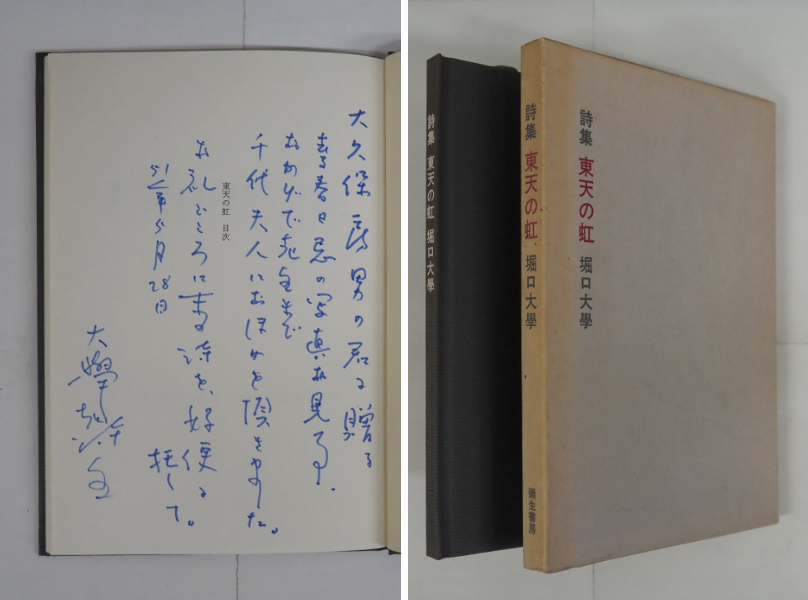 大久保房男の君に贈る
春日忌の写真お見事。
おかげで
千代夫人におほめを頂きました。
お礼ごころに書 詩を、好便に
托して。
51年5月28日
大學
東天の虹 目次
詩集 東天の虹 堀口大學
詩集 東天の虹 堀口大學
彌生書房
詩集 東天の虹 堀口大學